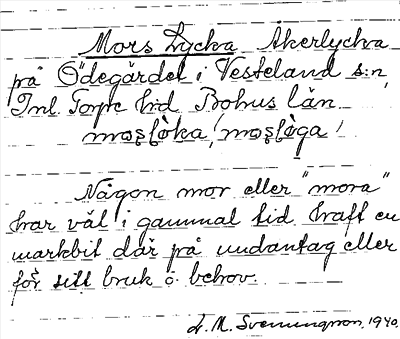 Mors Lycka Åkerlycka
på Ödegärdet i Vesteland s:n,
Inl. Torpe hd Bohus län
moʂʂlø̀ka, moʂʂlø̀ga,
Någon mor eller "mora"
har väl i gammal tid haft en
markbit där på undantag eller
för sitt bruk o. behov.
L. M. Svenungsson, 1940.